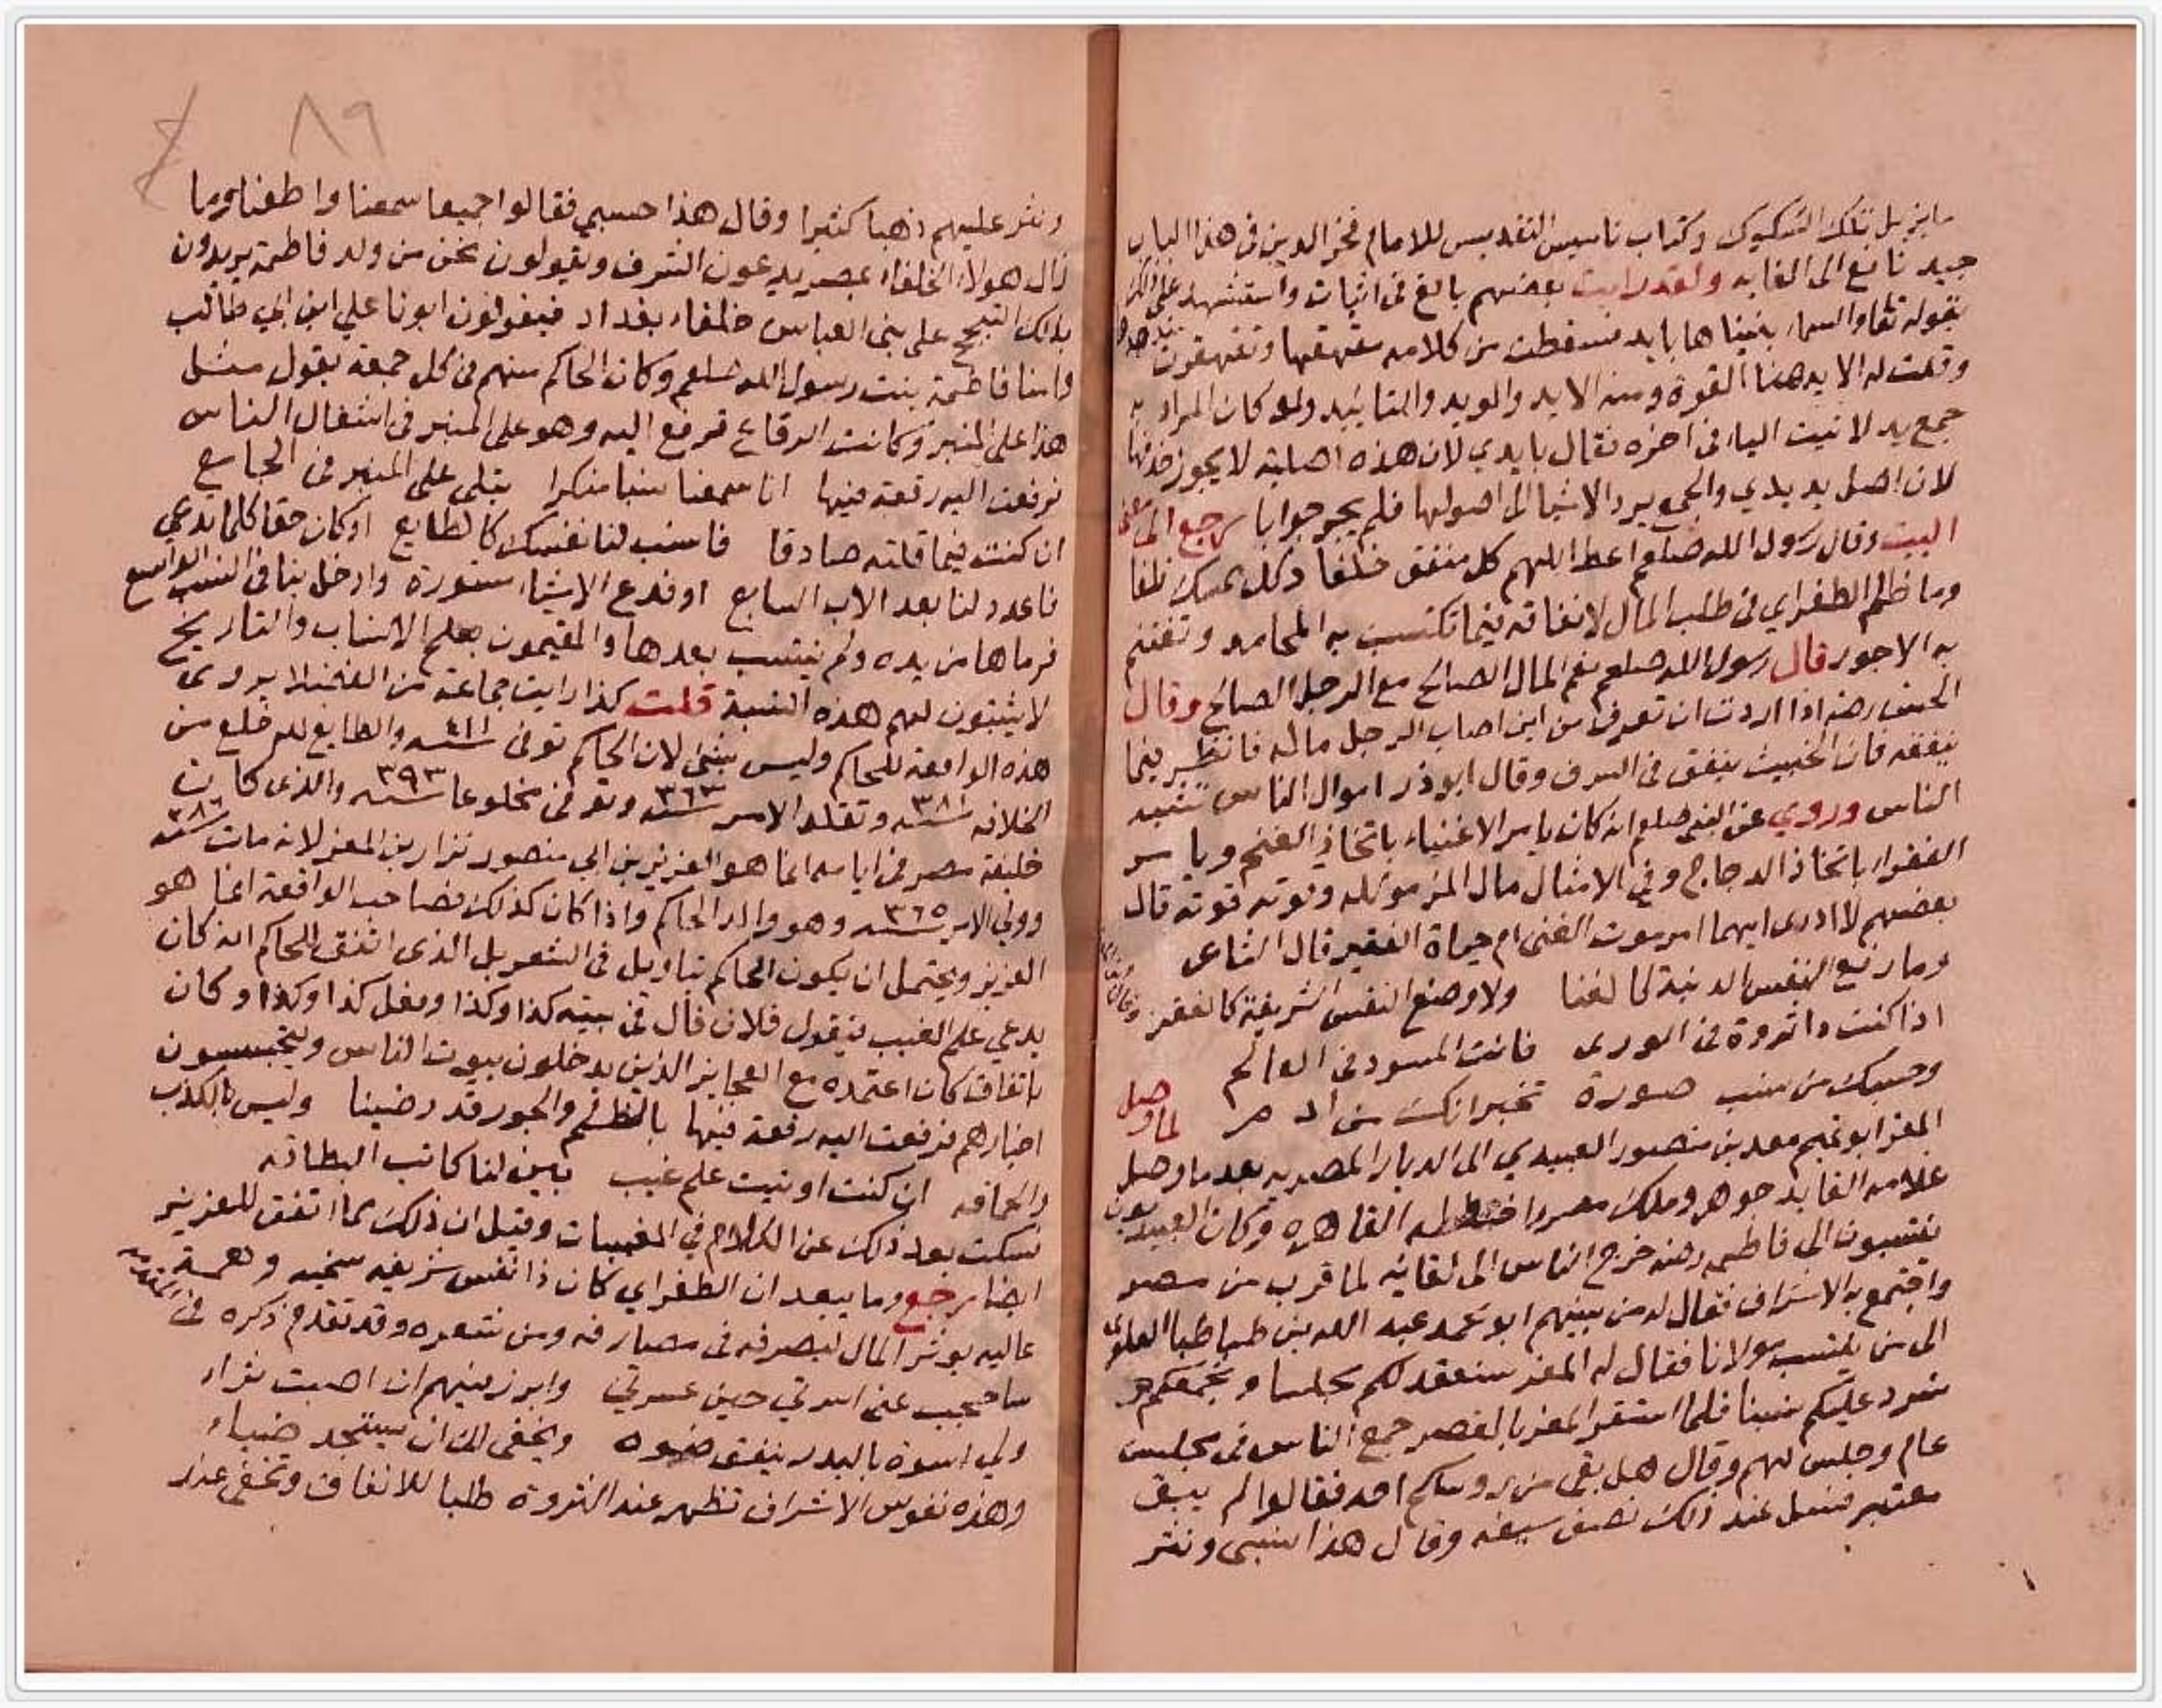 ما يزيل تلك الشكوك وكتاب تاسيس التقديس للامام فخر الدين فى هذا الباب
جيد نافع الى الغايه ولقد رايت بعضهم بالغ فى اثبات واستشهد على ذلك
بقوله تعالى والسماء بنيناها بايد فسقطت من كلامه مقهقها وتقهقرت
وقلت له الايد هنا القوة ومنه الايد والويد والتائيد ولو كان المراد به
جمع يد لاثبت الياء فى اخره فقال بايدي لان هذه اصلية لا يجوز حذفها
لان اصل يد يدي والجمع يرد الاشيا الى اصولها فلم يحر جوابا رجع الى معنى
البيت وقال رسول الله صلعم اللهم اعط كل منفق خلفا وكل ممسك تلفا
وما ظلم الطغراي فى طلب المال لانفاقه فيما تكتسب به المحامد وتغتنم
به الاجور قال رسول الله صلعم نعم المال الصالح مع الرجل الصالح وقال
الحسن رضه اذا اردت ان تعرف من اين اصاب الرجل ماله فانظر فيما
ينفقه فان الخبيث ينفق فى السرف وقال ابو ذر اموال الناس تشبه
الناس وروي عن النبي صلعم انه كان يامر الاغنياء باتخاذ الغنم ويامر
الفقرا باتخاذ الدجاج وفي الامثال مال المرء موئله وقوته قوته قال
بعضهم لا ادرى ايهما امر موت الغنى ام حياة الفقير قال الشاعر
وما رفع النفس الدنية كالغنا ولا وضع النفس الشريفة كالفقر
اذا كنت ذا ثروة فى الورى فانت المسود فى العالم
وحسبك من نسب صورة تخبر انك من ادم لما وصل
المعز ابو تميم معد بن منصور العبيدي الى الديار المصريه بعد ما وصل
غلامه القايد جوهر وملك مصر واختطط القاهره وكان العبيديون
ينتسبون الى فاطمه رضه خرج الناس الى لقائه لما قرب من مصر
واجتمع به الاشراف فقال له من بينهم ابو محمد عبد الله بن طباطبا العلوى
الى من ينتسب مولانا فقال له المعز سنعقد لكم مجلسا ونجمعكم و
نسرد عليكم نسبنا فلما استقر المعز بالقصر جمع الناس فى مجلس
عام وجلس لهم وقال هل بقي من روسائكم احد فقالوا لم يبق
معتبر فسل عند ذلك نصف سيفه وقال هذا نسبى ونثر
٨٩
ونثر عليهم ذهبا كثيرا وقال هذا حسبي فقالوا جميعا سمعنا واطعنا وما
زال هولاء الخلفاء بمصر يدعون الشرف ويقولون نحن من ولد فاطمة يريدون
بذلك التبجح على بنى العباس خلفاء بغداد فيقولون ابونا علي ابن ابي طالب
وامنا فاطمة بنت رسول الله صلعم وكان الحاكم منهم فى كل جمعة يقول مثل
هذا على المنبر وكانت الرقاع ترفع اليه وهو على المنبر فى اشغال الناس
فرفعت اليه رقعة فيها انا سمعنا نسبا منكرا يتلى على المنبر فى الجامع
ان كنت فيما قلته صادقا فانسب لنا نفسك كالطايع او كان حقا كلما تدعي
فاعدد لنا بعد الاب السابع او فدع الاشياء مستورة وادخل بنا فى النسب الواسع
فرماها من يده ولم ينتسب بعدها والمقيمون بعلم الانساب والتاريخ
لا يثبتون لهم هذه النسبة قلت كذا رايت جماعة من الفضلا يروى
هذه الواقعة للحاكم وليس بشئ لان الحاكم توفى سنة ٤١١ والطايع لله خلع من
الخلافه سنة ٣٨١ وتقلد الامر سنة ٣٦٣ وتوفى مخلوعا سنة ٣٩٣ والذى كان
خليفة مصر فى ايامه انما هو العزيز بن ابي منصور نزار بن المعز لانه مات سنة ٣٨٦
وولي الامر سنة ٣٦٥ وهو والد الحاكم واذا كان كذلك فصاحب الواقعة انما هو
العزيز ويحتمل ان يكون الحاكم تناويل فى الشعر بل الذى اتفق للحاكم انه كان
يدعي علم الغيب فيقول فلان قال فى بيته كذا وكذا وفعل كذا وكذا وكان
باتفاق كان اعتمده مع العجايز الذين يدخلون بيوت الناس ويتجسسون
اخبارهم فرفعت اليه رقعة فيها بالظلم والجور قد رضينا وليس بالكذب
والحماقه ان كنت اوتيت علم غيب بين لنا كاتب البطاقه
فسكت بعد ذلك عن الكلام في المغيبات وقيل ان ذلك مما اتفق للعزيز
ايضا رجع وما يبعد ان الطغراي كان ذا نفس شريفه سخيه وهمة
عاليه يوثر المال ليصرفه فى مصارفه ومن شعره وقد تقدم ذكره فى المقدمه
ساحجب عنى اسرتي حين عسرتي وابرز فيهم ان اصبت ثراء
ولي اسوة بالبدر ينفق ضوه ويخفى الى ان يستجد ضياء
وهذه نفوس الاشراف تظهر عند الثروة طلبا للانفاق وتخفى عند